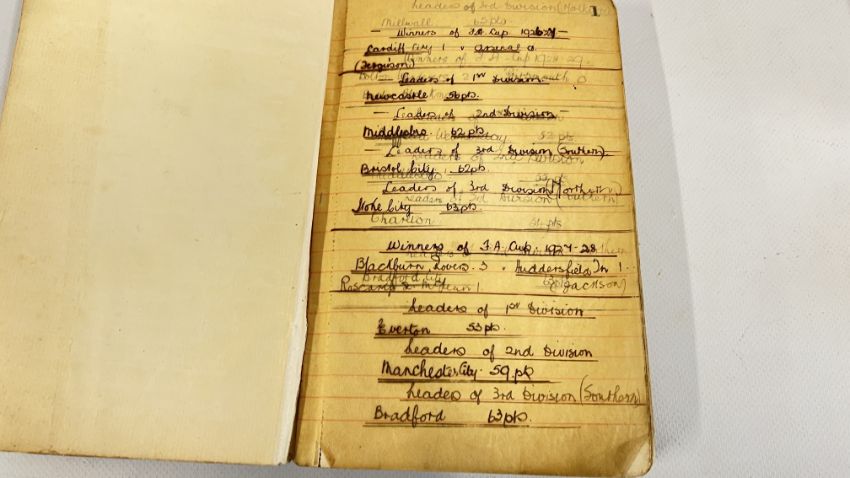 Leaders of 3rd Division (North
1
Millwall 65 pts
Winners of F.A. Cup 1926-27
Cardiff City 1 v Arsenal 0
(Ferguson)
Leaders of 1st Division
Newcastle 56 pts
Leaders of 2nd Division
Middlesbro 62 pts
Leaders of 3rd Division (Southern)
Bristol City 62 pts
Leaders of 3rd Division (Northern)
Stoke City 63 pts
Charlton pts
Winners of F.A. Cup 1927-28
Blackburn Rovers 3 v Huddersfield Tn 1
Roscamp 2 McLean 1 (Jackson)
Leaders of 1st Division
Everton 53 pts.
Leaders of 2nd Division
Manchester City 59 pts
Leaders of 3rd Division (Southern)
Bradford 63 pts.